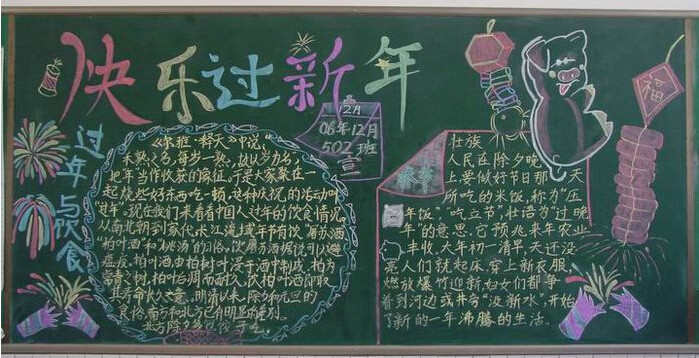 快乐过新年
12月
06年12月
502班
宣
过年与饮食
《尔雅·释天》中说,
禾熟之名,每岁一熟,故以岁为名,
把年当作收获的象征。于是大家聚在一
起烧些好东西吃一顿,这种庆祝的活动叫
“过年”。现在我们来看看中国人过年的饮食情况。
从南北朝到宋代,长江流域年节有饮“屠苏酒”
“柏叶酒”和“桃汤”的习俗。饮屠苏酒据说可以避
瘟疫。柏叶酒由柏树叶浸于酒中制成,柏为
常青之树,柏叶后凋而耐久,饮柏叶酒即取
其寿命长久之意。明清以来,除夕和元旦的
食俗南方和北方已有明显的差别。
北方除夕
福
壮族
人民在除夕晚
上要做好节日那一天
所吃的米饭,称为“压
年饭”,“吃立节”,壮语为“过晚
年”的意思。它预兆来年农业
丰收。大年初一清早,天还没
亮人们就起床,穿上新衣服,
燃放爆竹迎新,妇女们都争
着到河边或井旁“汲新水”,开始
了新的一年沸腾的生活。